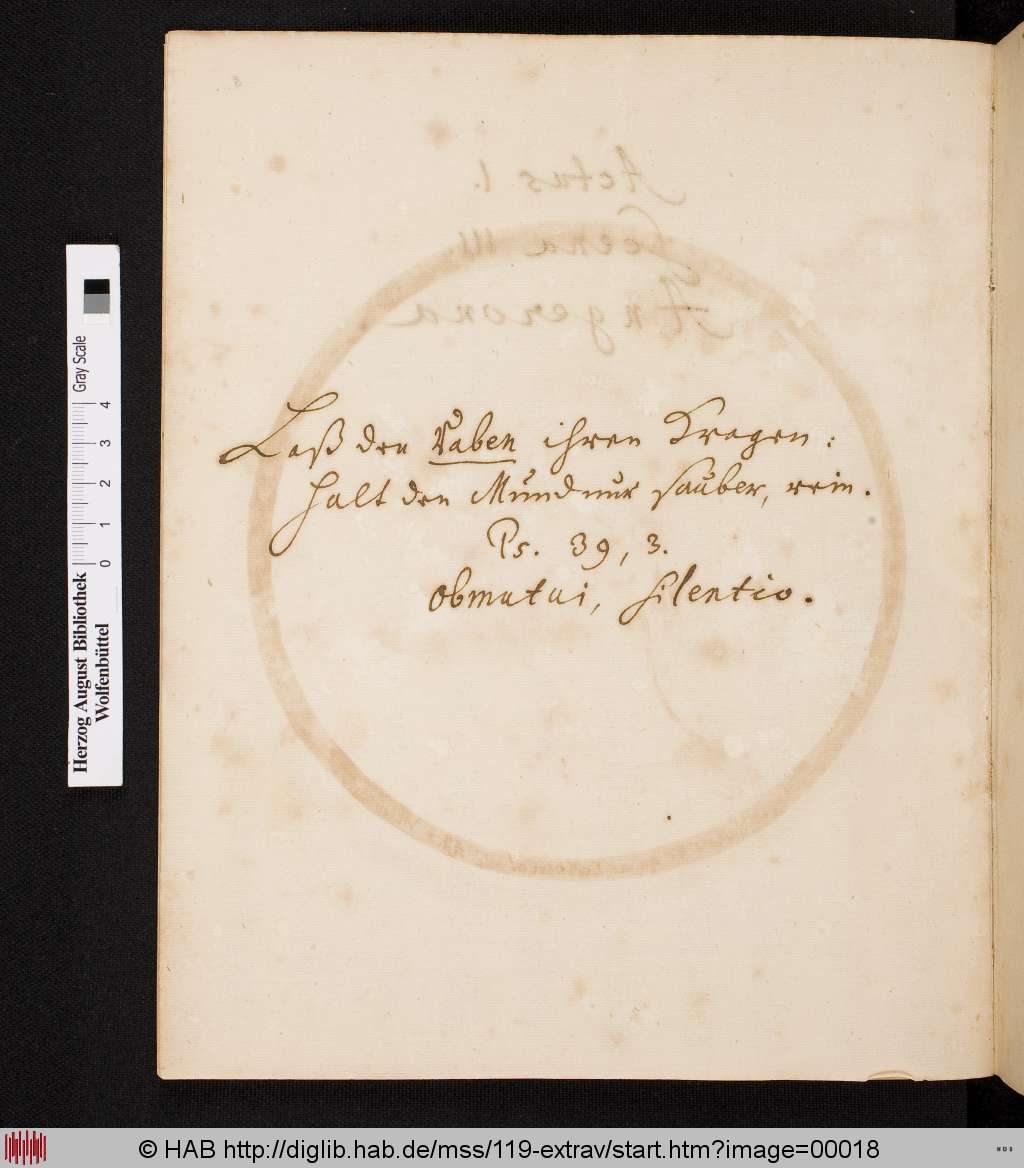 Actus I.
Scena III.
Angerona
Laß den Raben ihren Kragen:
halt den Mund nur sauber, rein.
Ps. 39, 3.
obmutui, silentio.
Gray Scale
0 1 2 3 4
Herzog August Bibliothek
Wolfenbüttel
© HAB http://diglib.hab.de/mss/119-extrav/start.htm?image=00018